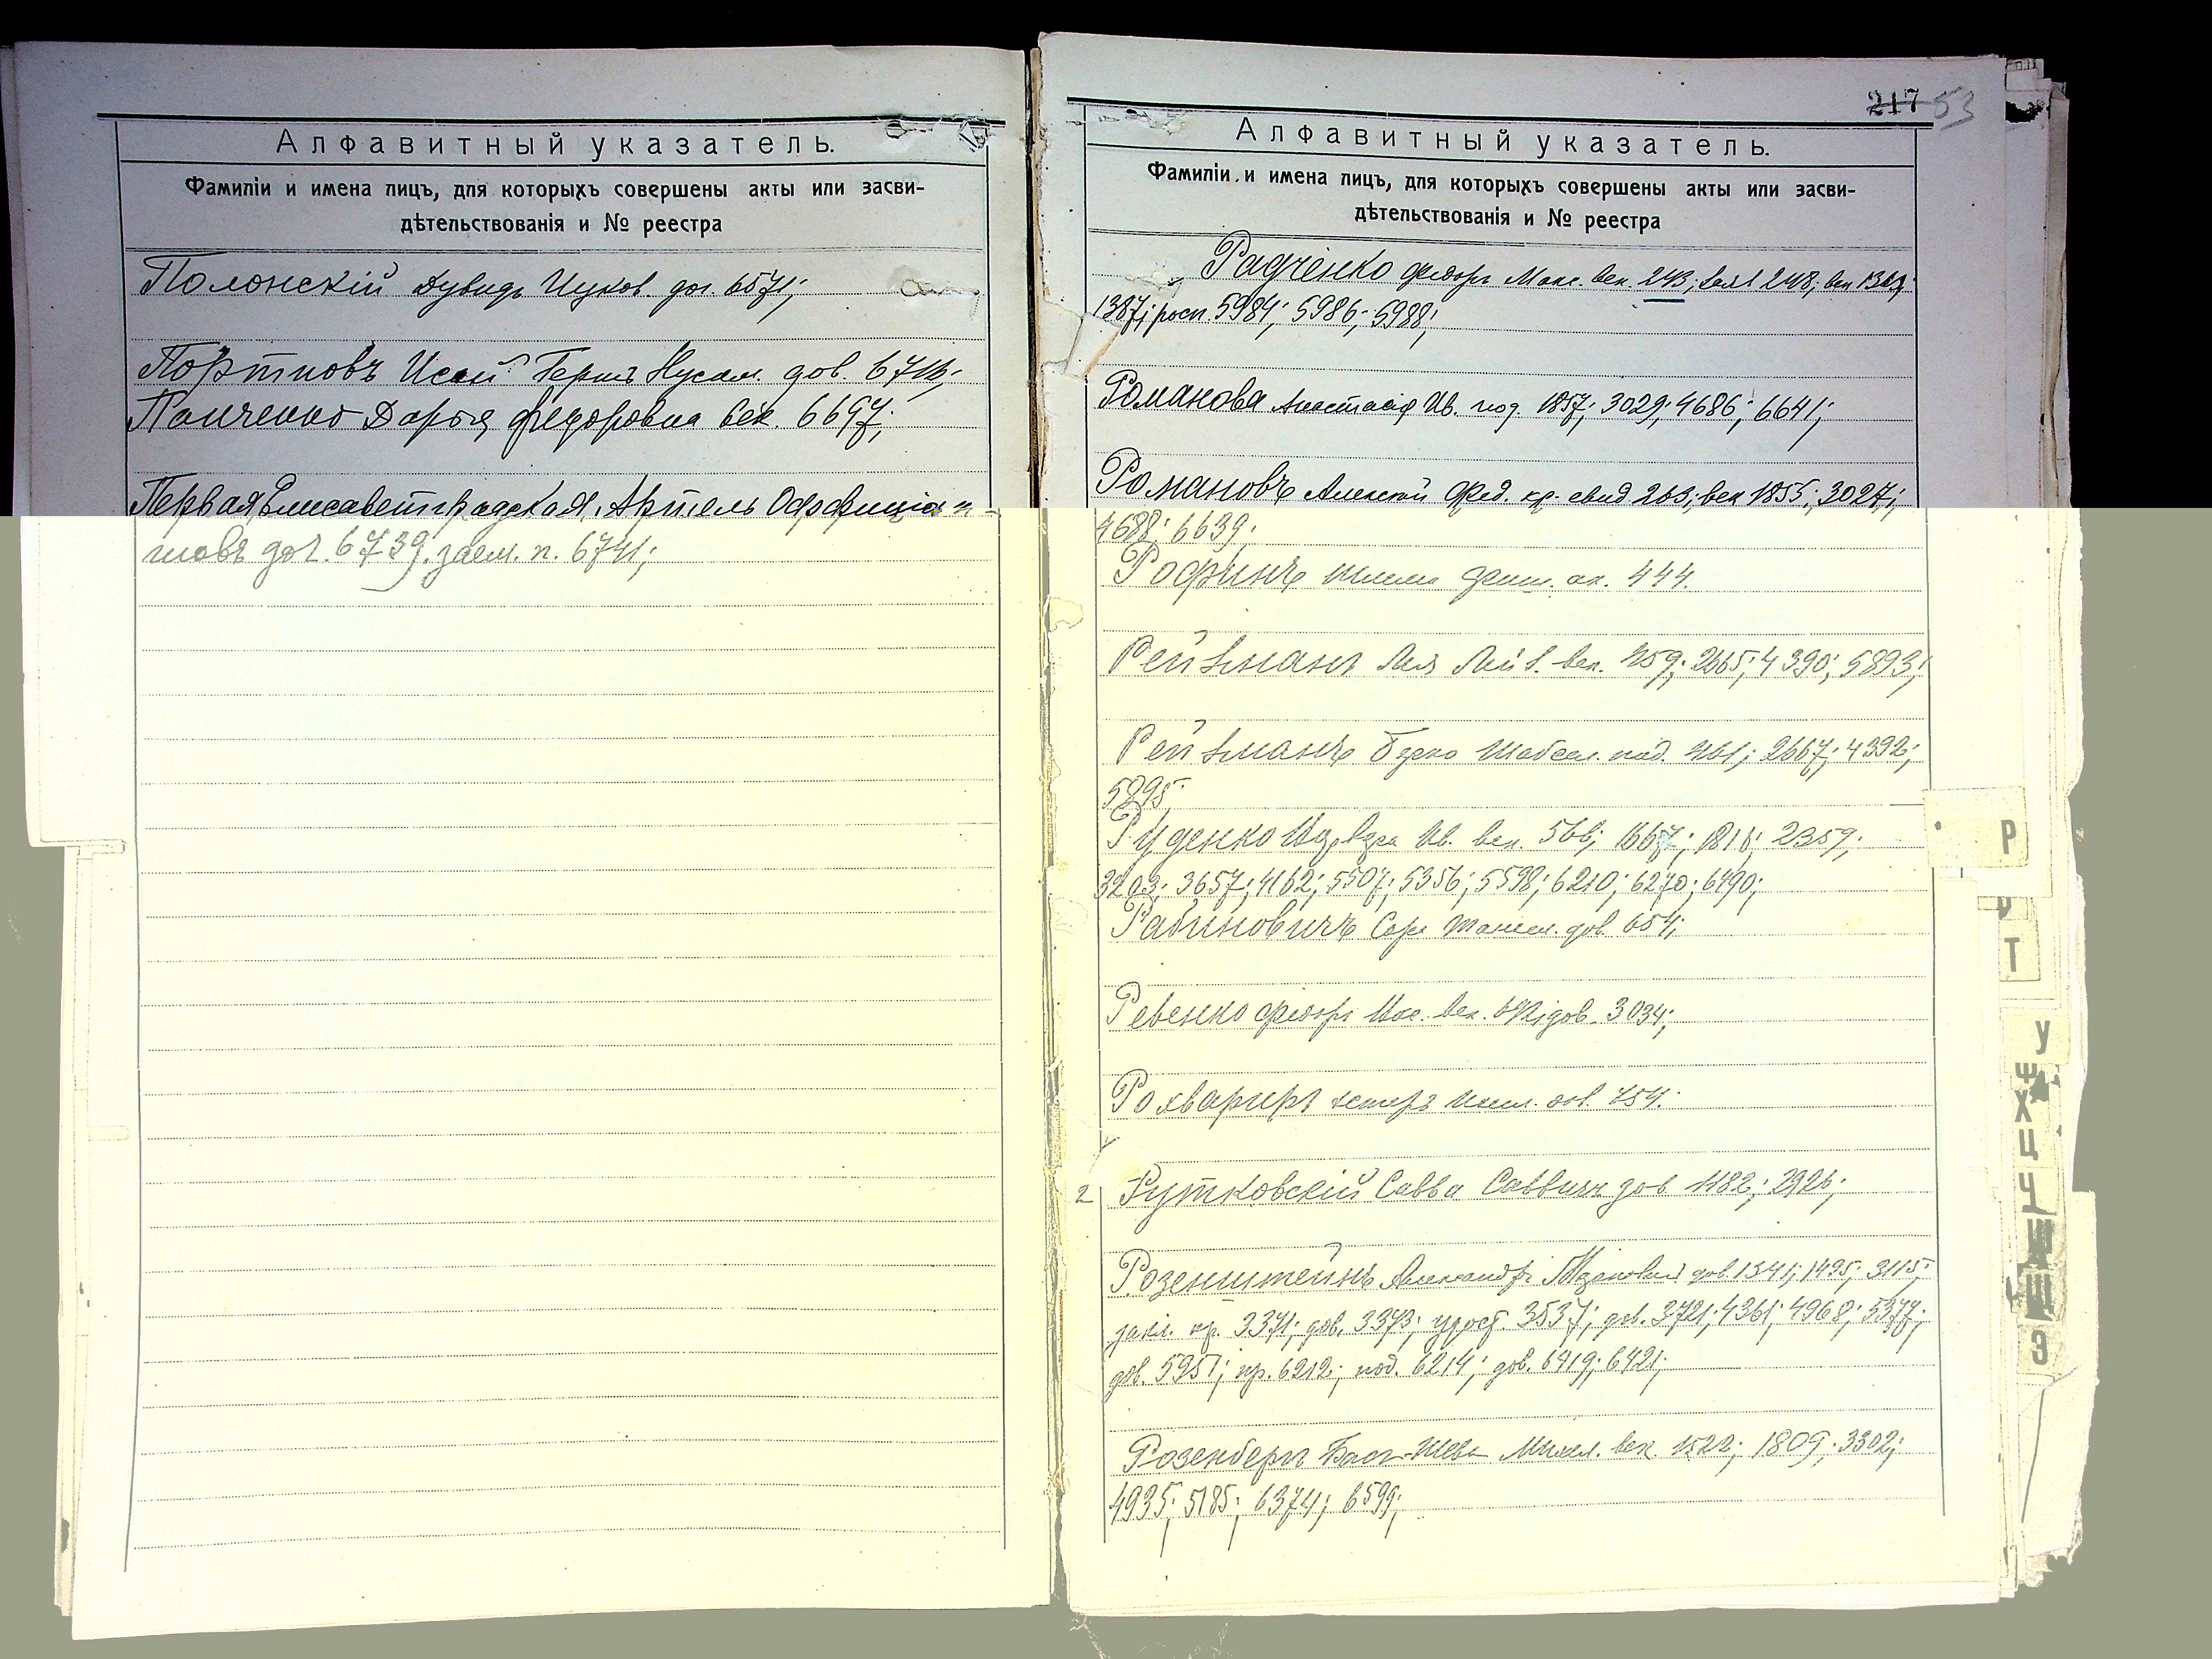 Алфавитный указатель.
Фамиліи и имена лицъ, для которыхъ совершены акты или засви-
дѣтельствованія и № реестра
Полонскій Дувидъ Ицков. дог. 6571;
Портновъ Исай Герш Нусим. дов.
Панченко Дарья Федоровна век. 6697;
Первая Елисаветградская Артель Оффиціан-
товъ дог. 6739. заем. п. 6741;
217 53
Алфавитный указатель.
Фамиліи и имена лицъ, для которыхъ совершены акты или засви-
дѣтельствованія и № реестра
Радченко Федоръ Макс. век. 243; 248; век
1387; росп. 5984; 5986; 5988;
Романова Анастасія Ив. под. 1857; 3029; 4686; 6641;
Романовъ Алексѣй Фед. кр. свид 263; век 1855; 3027;
4688; 6639;
444.
Рейзманъ Лея Лейб. век. 459; 2665; 4390; 5893;
Рейзманъ Шабсел. под. 461; 2667; 4392;
5895;
Руденко Ив. век. 566; 1667; 1816; 2359;
3203; 3657; 4162; 5507; 5356; 5598; 6210; 6270; 6490;
Рабиновичъ дов. 654;
Ревенко Федоръ век. дов. 3034;
дов. 754;
2 Рутковскій Савва Саввичъ дов. 1182; 2926;
Розенштейнъ Александръ дов. 1341; 1495; 3115;
закл. кр. 3371; дов. 3373; 3537; дов. 3721; 4361; 4968; 5377;
дов. 5951; пр. 6212; под. 6214; дов. 6419; 6421;
Розенбергъ Бася-Шева Михел. век. 1522; 1809; 3302;
4935; 5185; 6374; 6599;
Р
Т
У
Х
Ц
Ч
Ш
Щ
Э